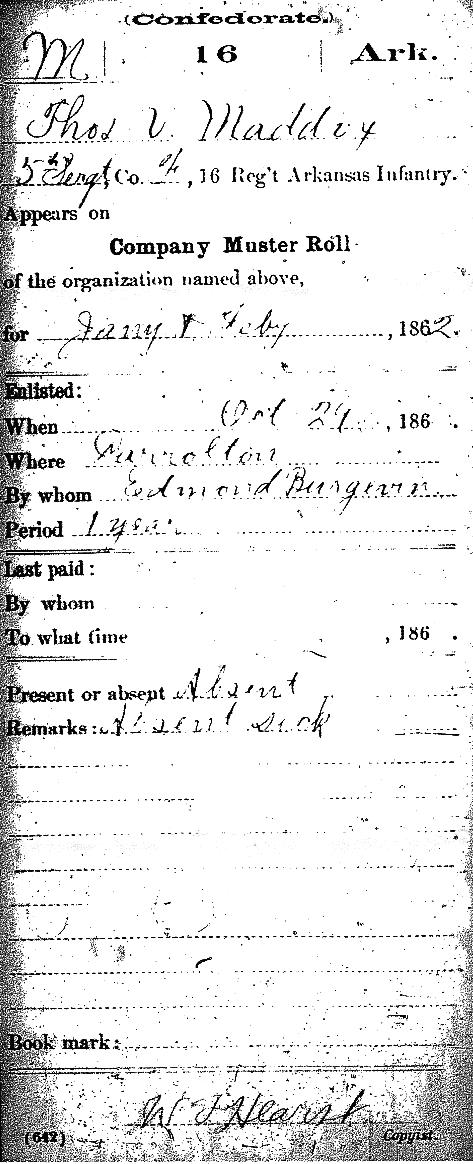 (Confederate.)
M | 16 | Ark.
Thos V. Maddix
5th Sergt, Co. , 16 Reg't Arkansas Infantry.
Appears on
Company Muster Roll
of the organization named above,
for Jany & Feby , 1862.
Enlisted:
When Oct , 186 .
Where Carrolton
By whom Edmond Burgevin
Period 1 year
Last paid:
By whom
To what time , 186 .
Present or absent Absent
Remarks: Absent Sick
Book mark:
W J Hearst
(642) Copyist.